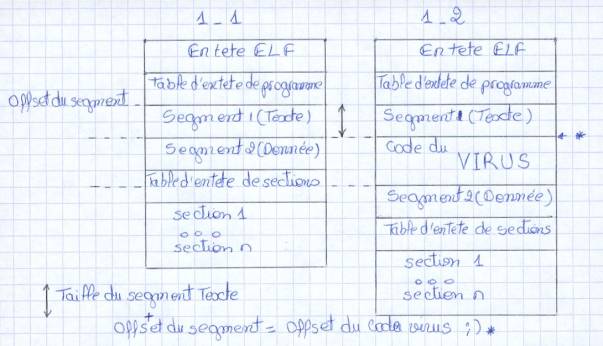 1_1
En tete ELF
Table d'extete de programme
Offset du segment
Segment 1 (Texte)
Segment 2 (Donnée)
Table d'entete de sections
section 1
o o o
section n
1_2
En tete ELF
Table d'extete de programme
Segment 1 (Texte)
*
Code du
VIRUS
Segment 2 (Donnée)
Table d'entete de sections
section 1
o o o
section n
Taille du segment Texte
+
Offset du segment = Offset du code virus ;) *